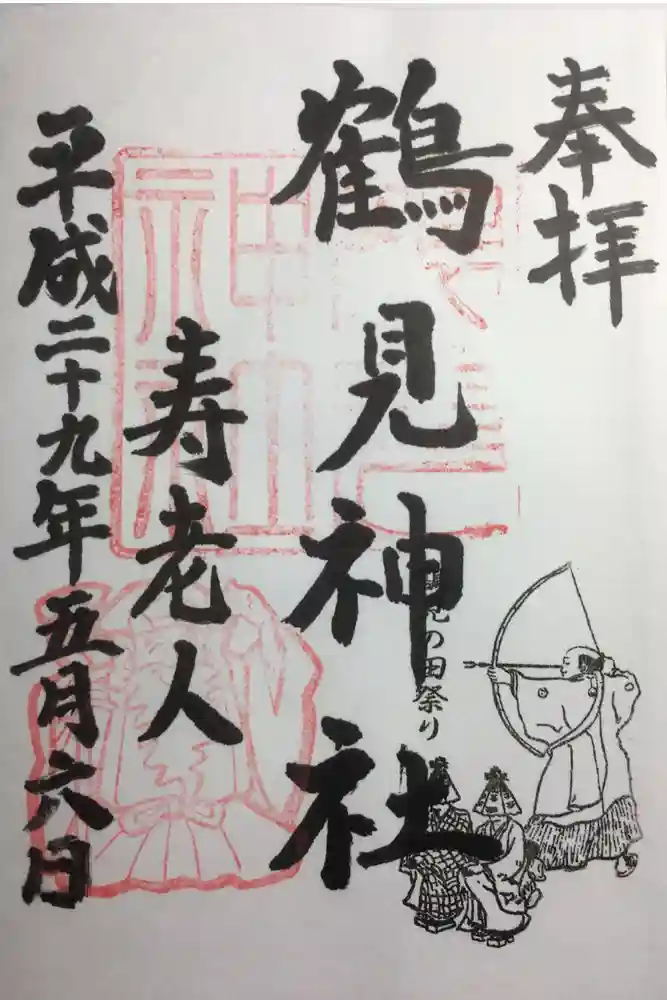 奉拝
鶴見神社
見の田祭り
寿老人
平成二十九年五月六日